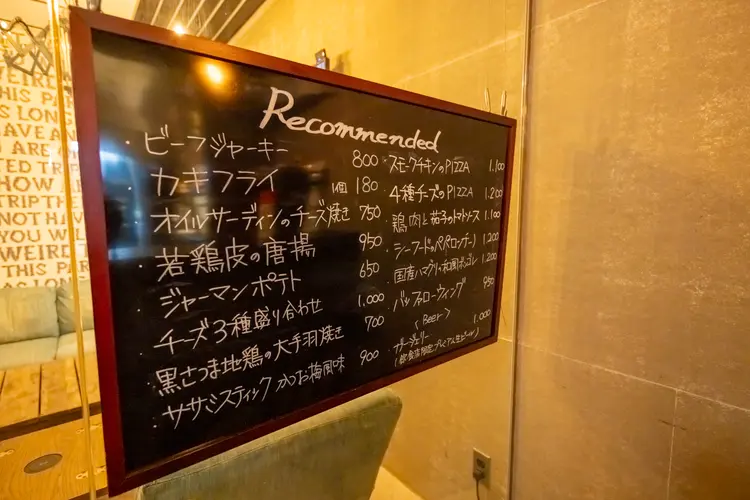 Recommended
・ビーフジャーキー 800
カキフライ 1個 180
オイルサーディンのチーズ焼き 750
・若鶏皮の唐揚 950
・ジャーマンポテト 650
・チーズ3種盛り合わせ 1,000
・黒さつま地鶏の大手羽焼き 700
・ササミスティック かつお梅風味 900
・スモークチキンのPIZZA 1.100
・4種チーズのPIZZA 1.200
・鶏肉と茄子のトマトソース 1.100
・シーフードのペペロンチーノ 1.200
・国産ハマグリの和風ボンゴレ 1.200
・バッファローウィング 950
<Beer>
1.000
THIS PAR
AS LONG
HAVE AN
ARE
TED TRIP
HOW
TRIP THE
NOT HAV
YOU WIL
WEIRD
THIS PAR
AS LONG